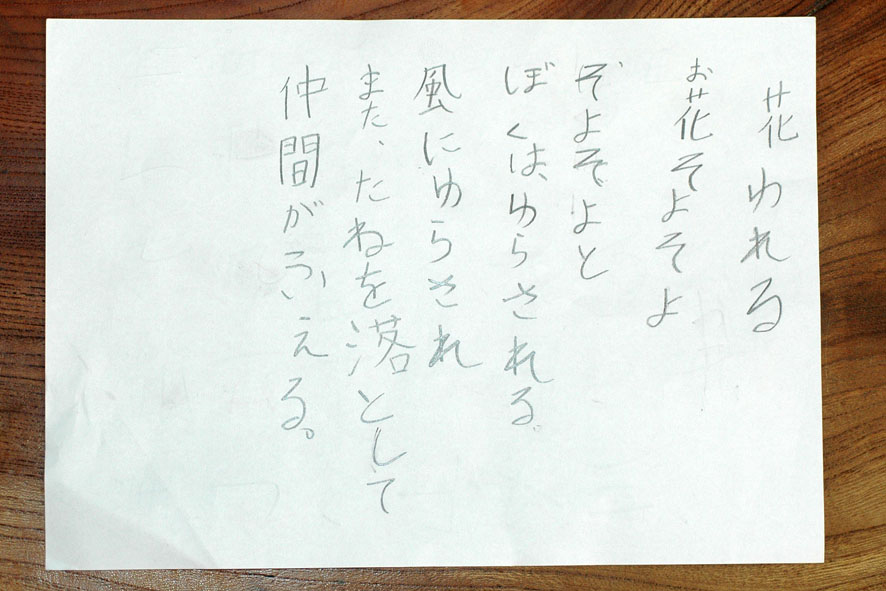 花ゆれる
お花そよそよ
そよそよと
ぼくは、ゆらされる。
風にゆらされ
また、たねを落として
仲間がふえる。